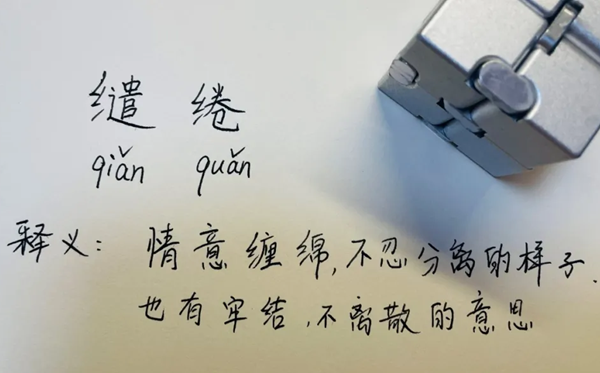 缱绻
qiǎn quǎn
释义：情意缠绵，不忍分离的样子．
也有牢结，不离散的意思